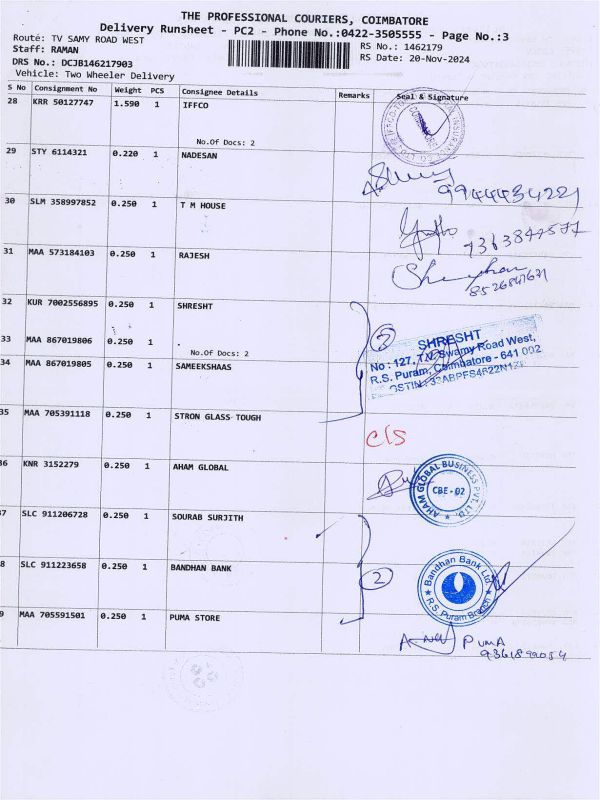 THE PROFESSIONAL COURIERS, COIMBATORE
Delivery Runsheet - PC2 - Phone No.:0422-3505555 - Page No.:3
Route: TV SAMY ROAD WEST
RS No.: 1462179
Staff: RAMAN
RS Date: 20-Nov-2024
DRS No.: DCJB146217903
Vehicle: Two Wheeler Delivery
S No Consignment No Weight PCS Consignee Details Remarks Seal & Signature
28 KRR 50127747 1.590 1 IFFCO
No.Of Docs: 2
29 STY 6114321 0.220 1 NADESAN
9944434221
30 SLM 358997852 0.250 1 T M HOUSE
7363847577
31 MAA 573184103 0.250 1 RAJESH
8526847671
32 KUR 7002556895 0.250 1 SHRESHT
33 MAA 867019806 0.250 1
No.Of Docs: 2
34 MAA 867019805 0.250 1 SAMEEKSHAAS
3
SHRESHT
No : 127, T.V. Swamy Road West,
R.S. Puram, Coimbatore - 641 002
35 MAA 705391118 0.250 1 STRON GLASS TOUGH
C/S
36 KNR 3152279 0.250 1 AHAM GLOBAL
AHAM GLOBAL BUSINESS PVT. LTD.
CBE - 02
37 SLC 911206728 0.250 1 SOURAB SURJITH
38 SLC 911223658 0.250 1 BANDHAN BANK
2
Bandhan Bank Ltd
R.S. Puram Branch
39 MAA 705591501 0.250 1 PUMA STORE
PUMA